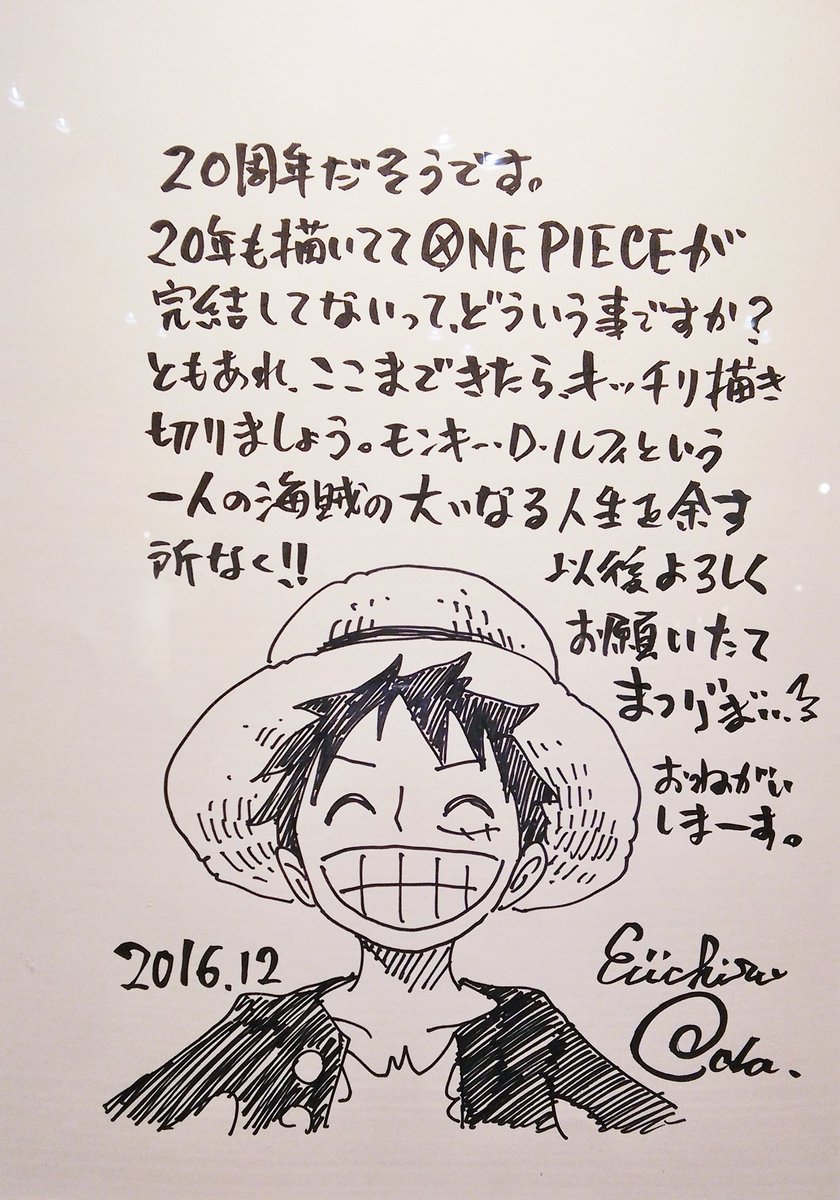 20周年だそうです。
20年も描いてて ONE PIECEが
完結してないって、どういう事ですか?
ともあれ、ここまできたら、キッチリ描き
切りましょう。モンキー・D・ルフィという
一人の海賊の大いなる人生を余す
所なく!!
以後よろしく
お願いたて
まつり
おねがい
しまーす。
2016.12
Eiichiro
Oda.